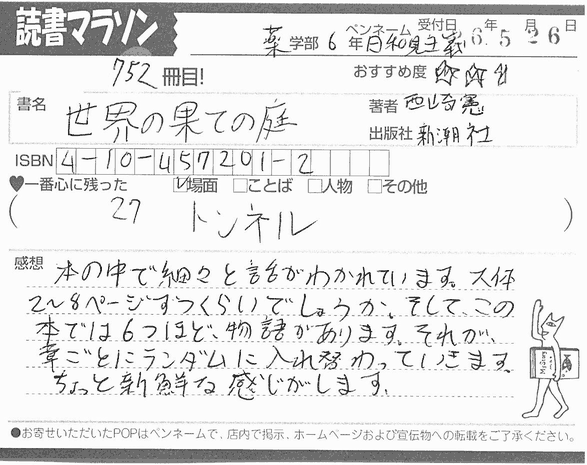 読書マラソン
薬 学部 6 年 ペンネーム 日和見主義 受付日 6年 5月 26日
752 冊目! おすすめ度 ☆☆☆
書名 世界の果ての庭 著者 西崎憲
出版社 新潮社
ISBN 4-10-457201-2
♥一番心に残った ☑場面 □ことば □人物 □その他
( 27 トンネル )
感想 本の中で細々と話がわかれています。大体
2〜8ページずつくらいでしょうか。そして、この
本では6つほど、物語があります。それが、
章ごとにランダムに入れ替わっていきます。
ちょっと新鮮な感じがします。
●お寄せいただいたPOPはペンネームで、店内で掲示、ホームページおよび宣伝物への転載をご了承ください。